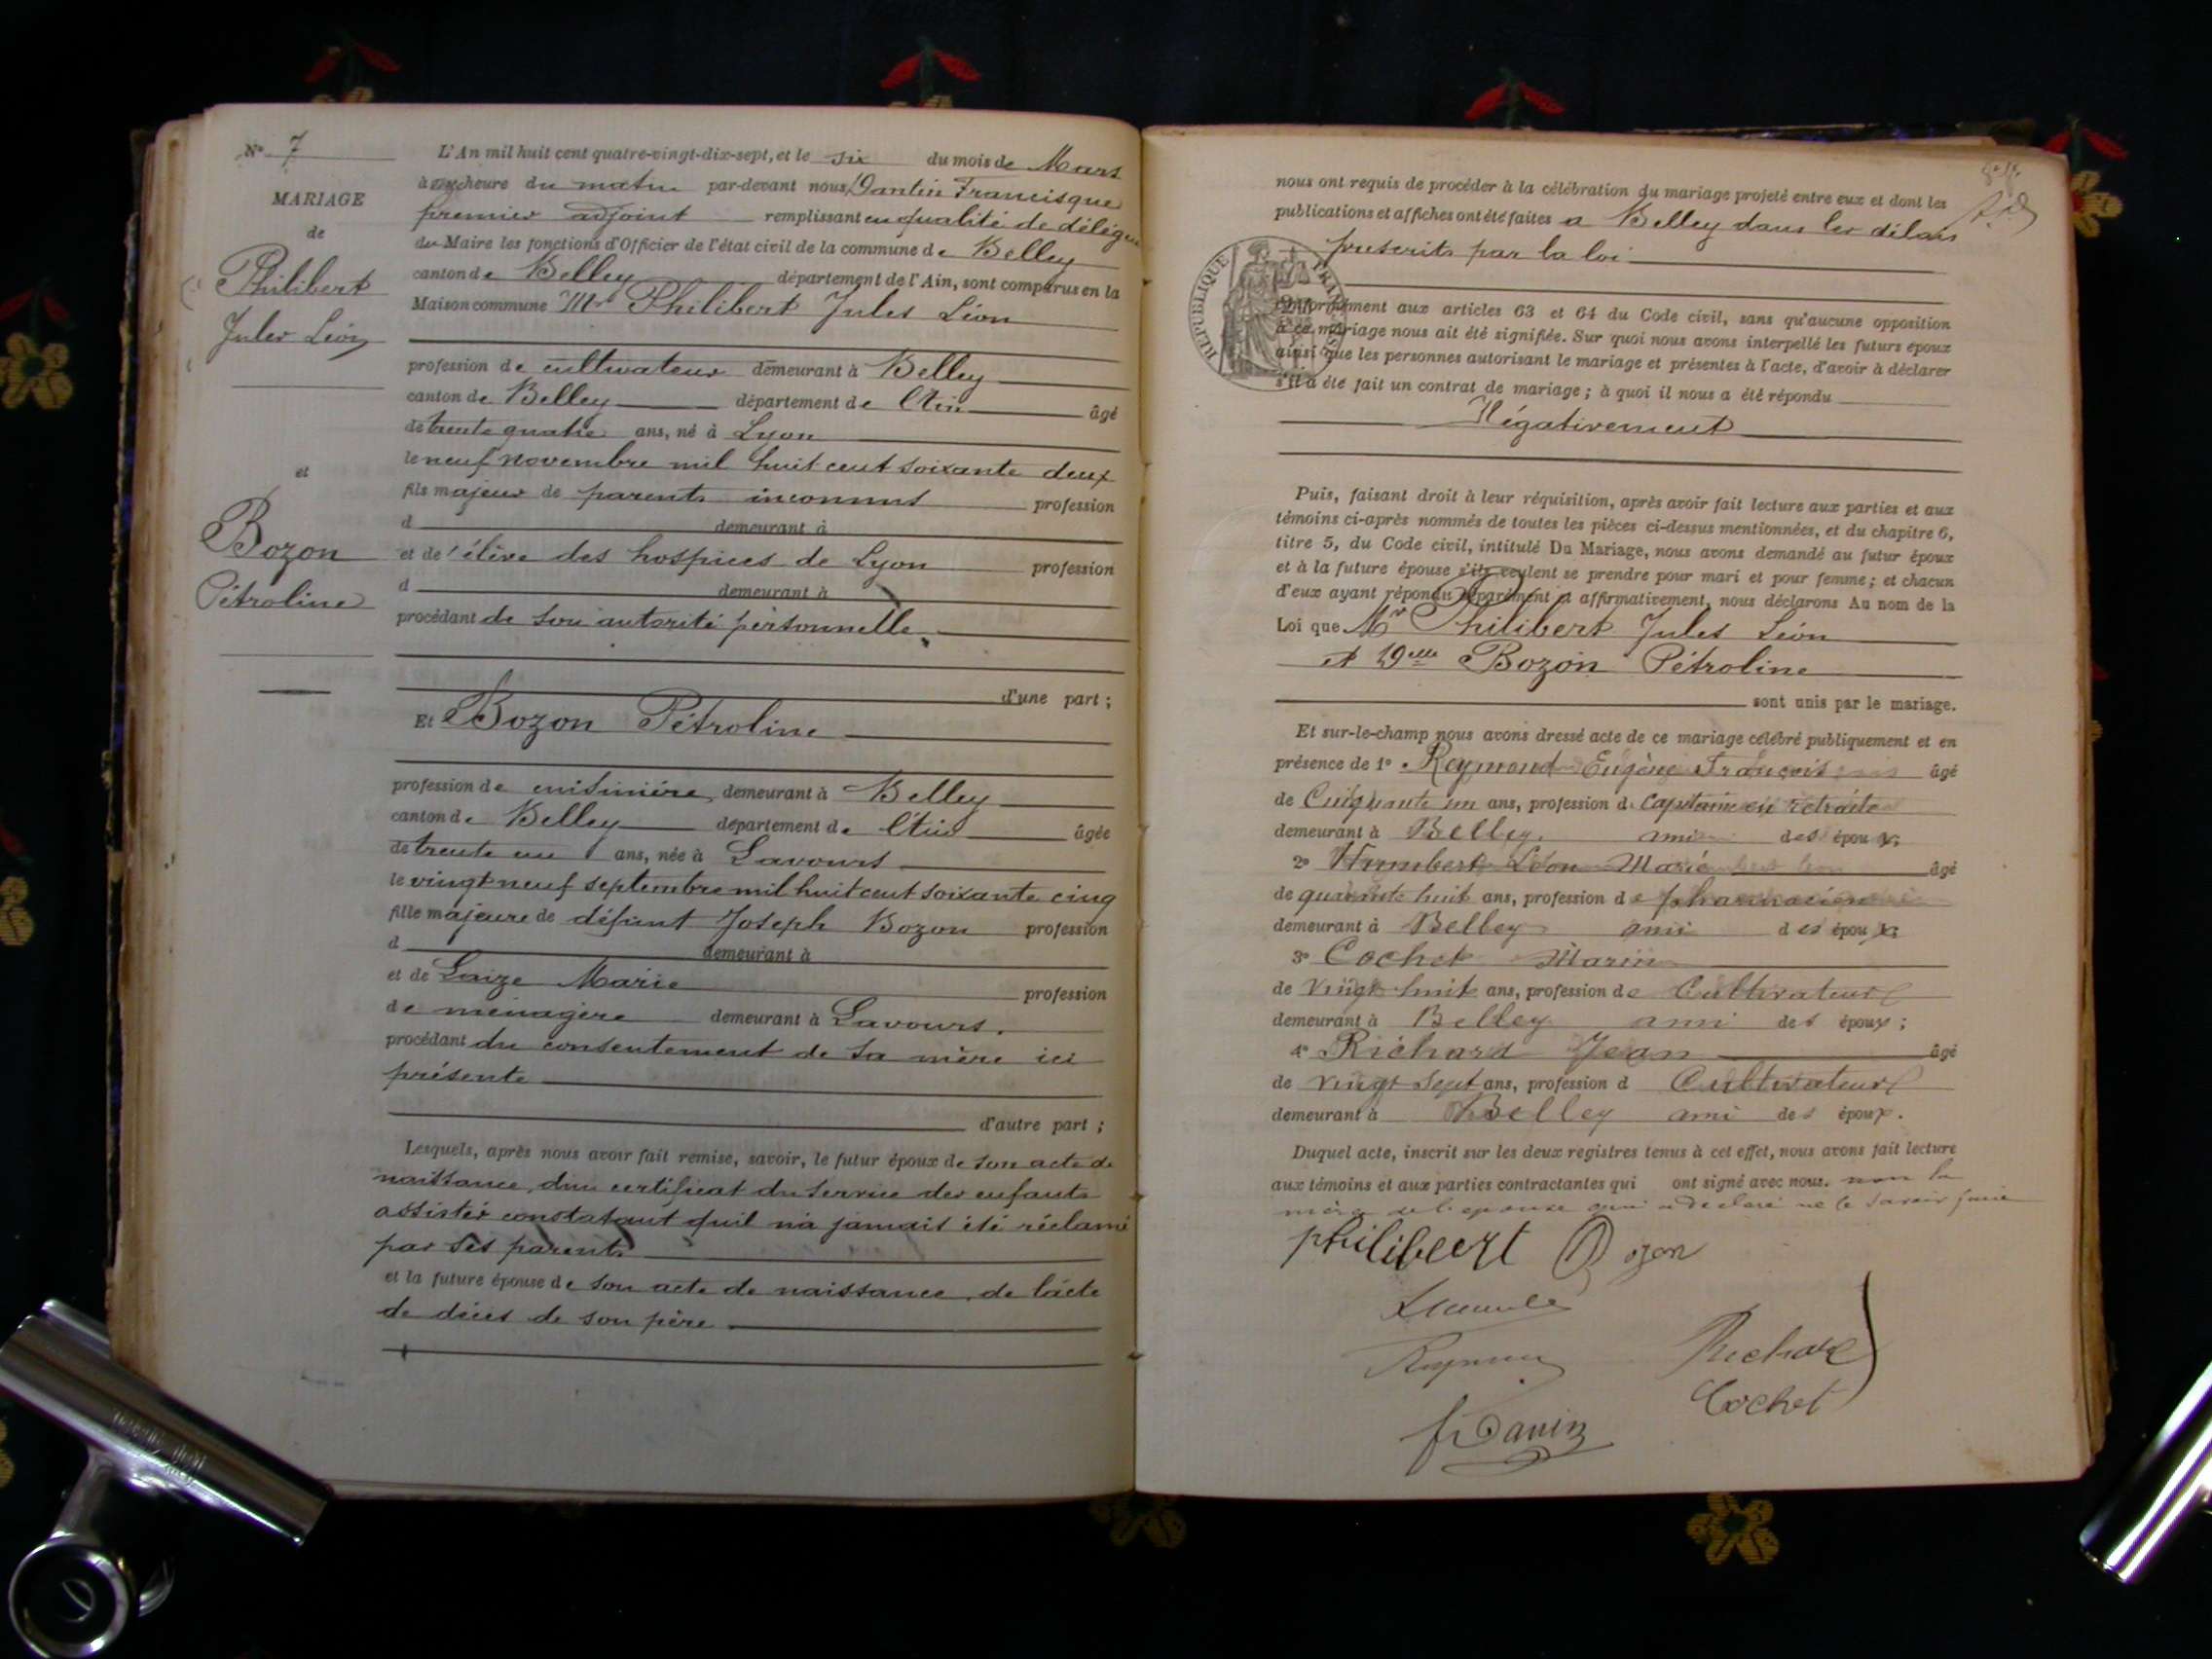 N° 7
MARIAGE
de
Philibert
Jules Léon
et
Bozon
Pétroline
L'An mil huit cent quatre-vingt-dix-sept, et le six du mois de Mars
à onze heure du matin par-devant nous, Dantin Francisque
premier adjoint remplissant en qualité de délégué
du Maire les fonctions d'Officier de l'état civil de la commune de Belley
canton de Belley département de l'Ain, sont comparus en la
Maison commune Mr Philibert Jules Léon
profession de cultivateur demeurant à Belley
canton de Belley département de l'Ain âgé
de trente quatre ans, né à Lyon
le neuf novembre mil huit cent soixante deux
fils majeur de parents inconnus profession
d demeurant à
et de élève des hospices de Lyon profession
d demeurant à
procédant de son autorité personnelle
d'une part ;
Et Bozon Pétroline
profession de cuisinière demeurant à Belley
canton de Belley département de l'Ain âgée
de trente un ans, née à Lavours
le vingt neuf septembre mil huit cent soixante cinq
fille majeure de défunt Joseph Bozon profession
d demeurant à
et de Laize Marie profession
de ménagère demeurant à Lavours.
procédant du consentement de sa mère ici
présente
d'autre part ;
Lesquels, après nous avoir fait remise, savoir, le futur époux de son acte de
naissance, d'un certificat du service des enfants
assistés constatant qu'il n'a jamais été réclamé
par ses parents
et la future épouse de son acte de naissance, de l'acte
de décès de son père
nous ont requis de procéder à la célébration du mariage projeté entre eux et dont les
publications et affiches ont été faites a Belley dans les délais
prescrits par la loi
RÉPUBLIQUE FRANÇAISE
conformément aux articles 63 et 64 du Code civil, sans qu'aucune opposition
à ce mariage nous ait été signifiée. Sur quoi nous avons interpellé les futurs époux
ainsi que les personnes autorisant le mariage et présentes à l'acte, d'avoir à déclarer
s'il a été fait un contrat de mariage ; à quoi il nous a été répondu
Négativement
Puis, faisant droit à leur réquisition, après avoir fait lecture aux parties et aux
témoins ci-après nommés de toutes les pièces ci-dessus mentionnées, et du chapitre 6,
titre 5, du Code civil, intitulé Du Mariage, nous avons demandé au futur époux
et à la future épouse s'ils veulent se prendre pour mari et pour femme ; et chacun
d'eux ayant répondu séparément et affirmativement, nous déclarons Au nom de la
Loi que Mr Philibert Jules Léon
et Delle Bozon Pétroline
sont unis par le mariage.
Et sur-le-champ nous avons dressé acte de ce mariage célébré publiquement et en
présence de 1° Reymond Eugène François âgé
de Cinquante un ans, profession d. Capitaine en retraite
demeurant à Belley. ami des époux;
2° Humbert Léon Marie âgé
de quarante huit ans, profession de pharmacien
demeurant à Belley ami des époux;
3° Cochet Marin
de vingt huit ans, profession de Cultivateur
demeurant à Belley ami des époux ;
4° Richard Jean âgé
de vingt sept ans, profession d Cultivateur
demeurant à Belley ami des époux.
Duquel acte, inscrit sur les deux registres tenus à cet effet, nous avons fait lecture
aux témoins et aux parties contractantes qui ont signé avec nous. non la
mère de l'épouse qui a déclaré ne le savoir faire
philibert Bozon
Richard
Cochet